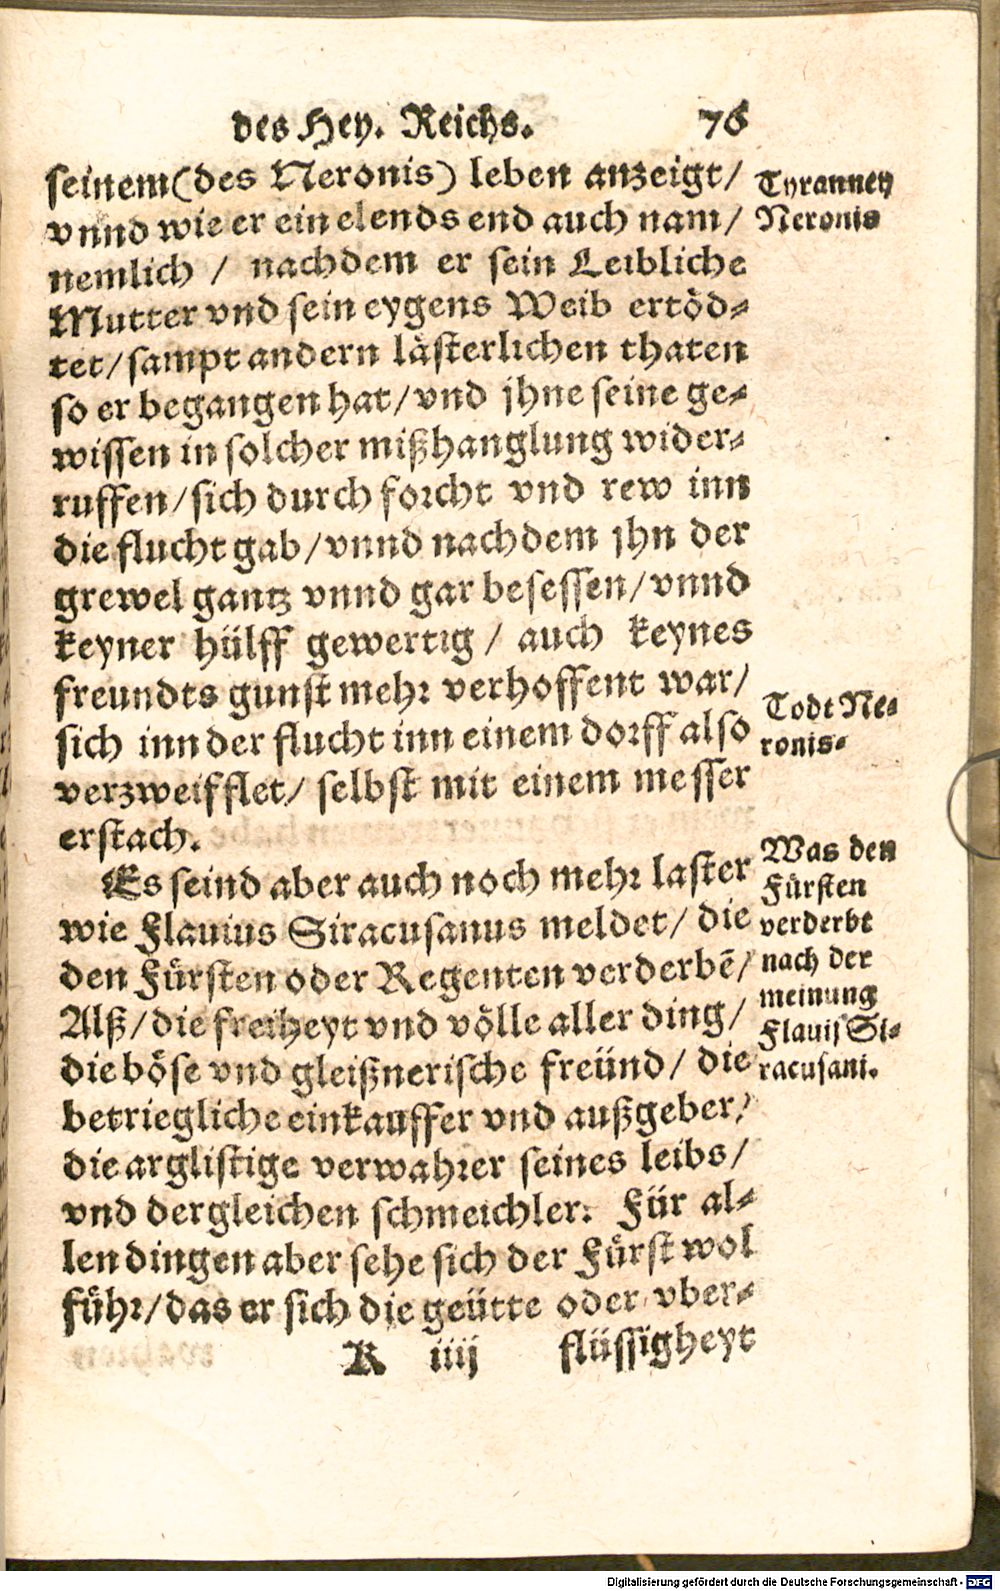 des Hey. Reichs. 76
seinem (des Neronis) leben anzeigt/
vnnd wie er ein elends end auch nam/
nemlich / nachdem er sein Leibliche
Mutter vnd sein eygens Weib ertöd-
tet/ sampt andern lästerlichen thaten
so er begangen hat/ vnd jhne seine ge-
wissen in solcher mißhanglung wider-
ruffen/ sich durch forcht vnd rew inn
die flucht gab/ vnnd nachdem jhn der
grewel gantz vnnd gar besessen/ vnnd
keyner hülff gewertig / auch keynes
freundts gunst mehr verhoffent war/
sich inn der flucht inn einem dorff also
verzweifflet/ selbst mit einem messer
erstach.
Es seind aber auch noch mehr laster
wie Flauius Siracusanus meldet/ die
den Fürsten oder Regenten verderbē/
Alß/ die freiheyt vnd völle aller ding/
die böse vnd gleißnerische freünd/ die
betriegliche einkauffer vnd außgeber/
die arglistige verwahrer seines leibs/
vnd dergleichen schmeichler. Für al-
len dingen aber sehe sich der Fürst wol
führ/ das er sich die geütte oder vber-
K iiij flüssigheyt
Tyranney
Neronis
Todt Ne-
ronis-
Was den
Fürsten
verderbt
nach der
meinung
Flauij Si-
racusani.
Digitalisierung gefördert durch die Deutsche Forschungsgemeinschaft - DFG